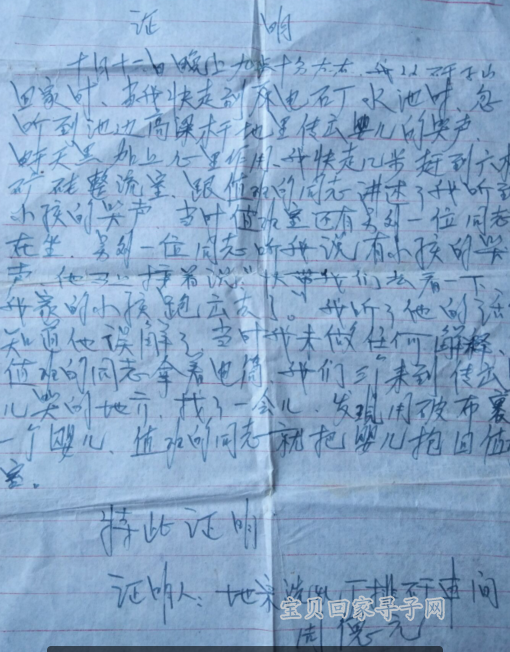 证 明
十月十二日晚上九点十分左右,我从
回家时,当我快走到 电石厂水池时,忽
听到池边高粱杆地里传出婴儿的哭声
天黑加上心里作用,我快走几步赶到
硅整流室,跟值班的同志讲述了我听到
小孩的哭声,当时值班室还有另外一位同志
在坐,另外一位同志听我说有小孩的哭
声,他马上接着说 快带我们去看一下,
我家的小孩跑出去了。我听了他的话
知道他误解了,当时我未做任何解释,
值班的同志拿着电筒,我们三个来到传出
儿哭的地方,找了一会儿,发现用破布裹
一个婴儿,值班的同志就把婴儿抱回值
室。
特此证明
证明人: 车间
周 元
宝贝回家寻子网